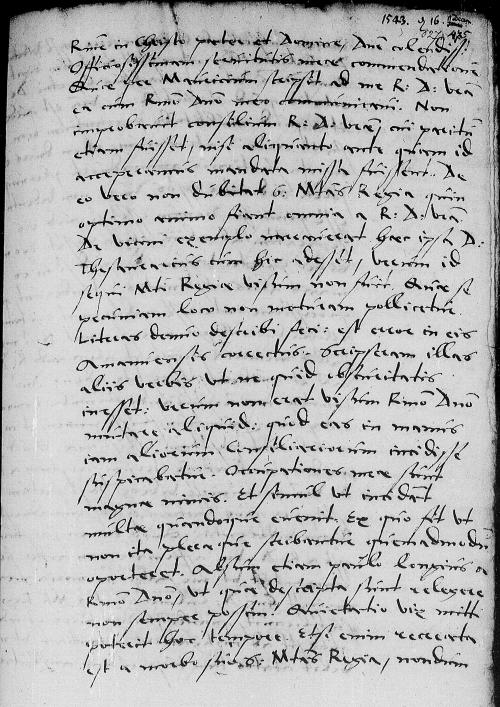 1543. 9 16.
Rme in Christo pater et Domine, Dne colendiss:
Officiosissimam servitutis meae commendationem
Quae per Mauricium scripsit ad me R: D: vra
ea cum Rmo Dno meo communicavi. Non
improbavit consilium R: D: vrae, cui paritum
etiam fuisset, nisi aliquanto ante quam id
acceperamus mandata missa fuissent. De
eo vero non dubitat S: Mtas Regia quin
optimo animo fiant omnia a R: D: vra
De vicini exemplo narraverat haec ipsa D:
Thesaurarius cum hic adesset, verum id
sequi Mti Regiae visum non fuit. Quare se
pecuniam loco non moturam pollicetur.
Literas denuo describi feci: est error in eis
correctus. Scripseram illas
aliis verbis ut ne quid obscuritatis
inesset: verum non erat visum Rmo Dno
mutare aliquid: quod eas in manus
iam aliorum Consiliariorum incidisse
suspicabatur. Occupationes meae sunt
magnae nimis. Et simul ut incidant
multae quandoque evenit. Ex quo fit ut
non ita pleraque scribantur quemadmodum
oporteret. Absum etiam paulo longius a
Rmo Dno, ut quae descripta sunt relegere
non semper possim. Quietatio vix mitti
poterit hoc tempore. Etsi enim recreata
est a morbo suo S: Mtas Regia, nondum